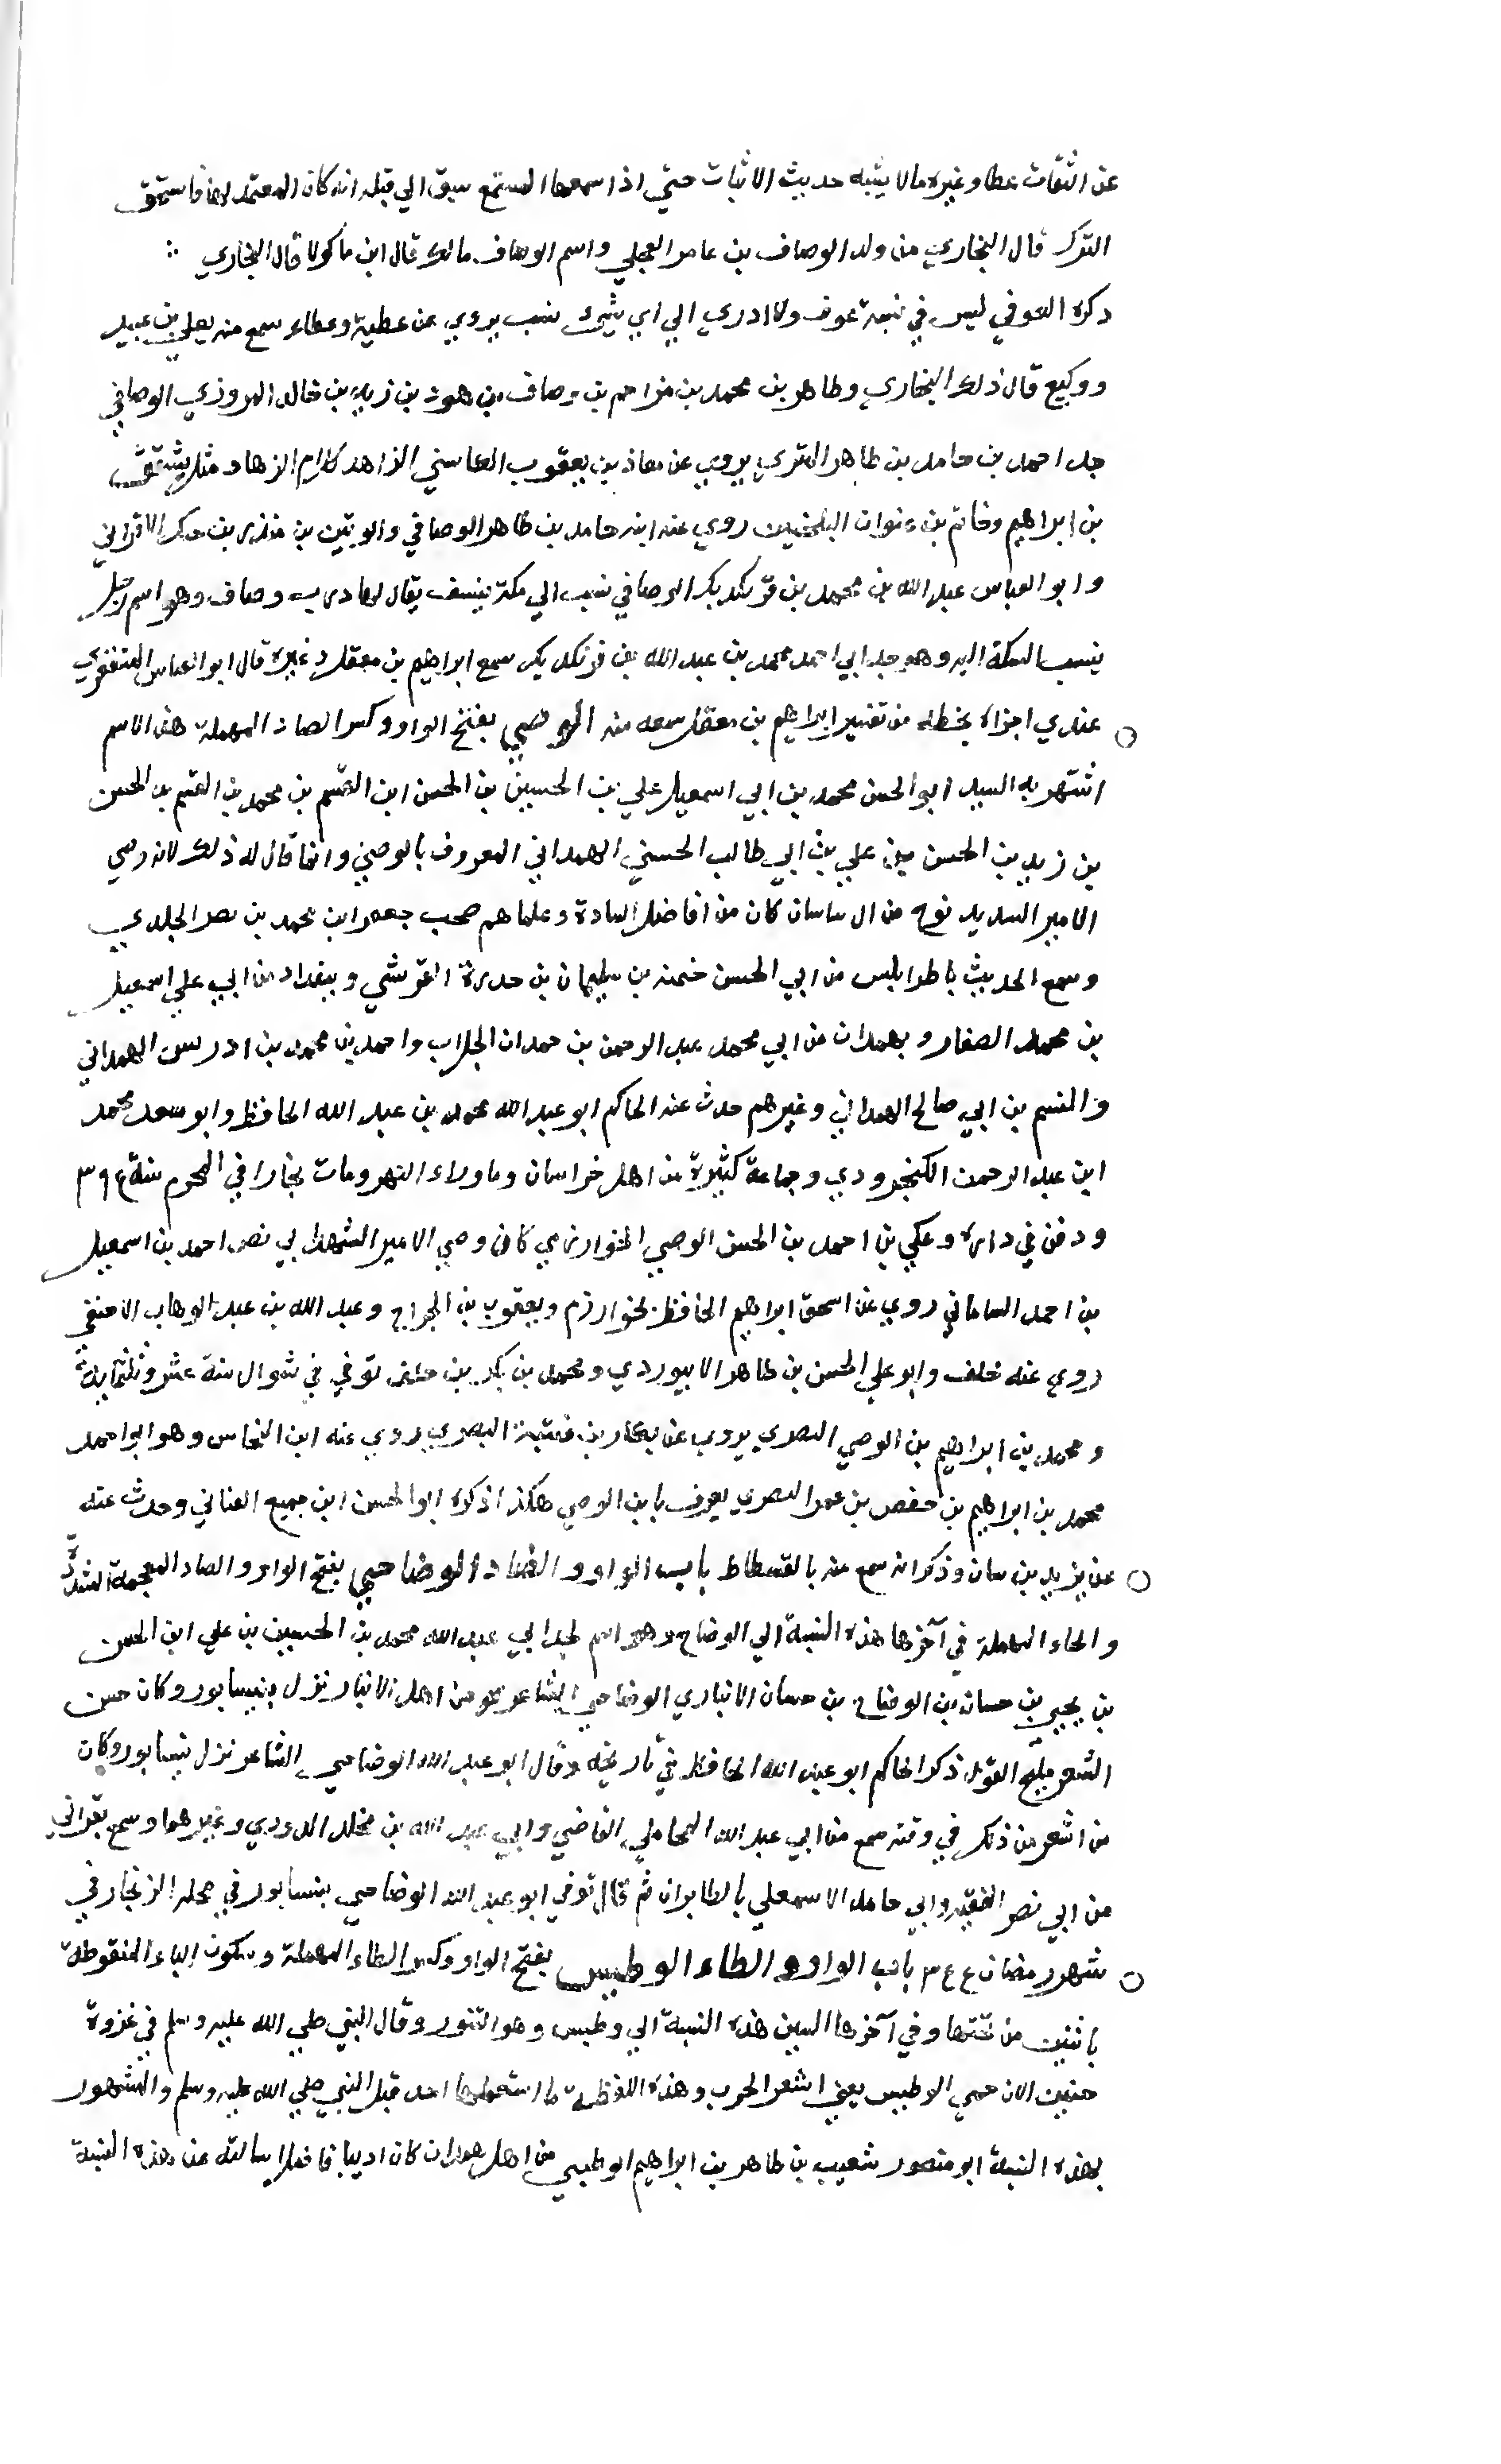 عن الثقات عطا وغيره مالا يشبه حديث الاثبات حتي اذا سمعها المستمع سبق الي قبله انه كان المعتمد لها فاستحق
الترك قال البخاري من ولد الوصاف بن عامر العجلي واسم الوصاف مالك قال ابن ماكولا قال البخاري
ذكره العوفي ليس في نسبة عوف ولا ادري الي اي شيء نسب يروي عن عطية وعطاء سمع منه يعلي بن عبيد
ووكيع قال ذلك البخاري وطاهر بن محمد بن مزاحم بن وصاف بن هود بن زيد بن خالد المروزي الوصافي
جد احمد بن حامد بن طاهر المقري يروي عن معاذ بن يعقوب الكاسني الزاهد كلام الزهاد مثل شقيق
بن ابراهيم وحاتم بن عنوان البلخيين روي عنه ابنه حامد بن طاهر الوصافي بن منذر بن حكر
وابو العباس عبد الله بن محمد بن فرنكديك الوصافي نسب الي سكة بنسف يقال لها درب وصاف وهو اسم رجل
ينسب السكة اليه وهو جد ابي احمد محمد بن عبد الله بن فرنكديك سمع ابراهيم بن معقل وغيره قال ابو العباس المستغفري
عندي اجزاء بخطه من تفسير ابراهيم بن معقل سمعه منه الوصي بفتح الواو وكسر الصاد المهملة هذا الاسم
اشتهر به السيد ابو الحسن محمد بن ابي اسمعيل علي بن الحسين بن الحسن ابن القسم بن محمد بن القسم بن الحسن
بن زيد بن الحسن بن علي بن ابي طالب الحسني الهمداني المعروف بالوصي وانما قال له ذلك لانه وصي
الامير السديد نوح من ال ساسان كان من افاضل السادة وعلماهم صحب جعفر ابن محمد بن نصر الجلدي
وسمع الحديث باطرابلس من ابي الحسن خيثمه بن سليمان بن حدرة القرشي وببغداد من ابي علي اسمعيل
بن محمد الصفار وبهمدان من ابي محمد عبد الرحمن بن حمدان الجلاب واحمد بن محمد بن ادريس الهمداني
والقسم بن ابي صالح الهمداني وغيرهم حدث عنه الحاكم ابو عبد الله محمد بن عبد الله الحافظ وابو سعد محمد
ابن عبد الرحمن الكنجرودي وجماعة كثيرة من اهل خراسان وماوراء النهر ومات بخارا في المحرم سنة ٣٩٤
ودفن في داره وعكي بن احمد بن الحسن الوصي الخوارزمي كان وصي الامير الشهيد ابي نصر احمد بن اسمعيل
بن احمد الساماني روي عن اسحق ابراهيم الحافظ بخوارزم ويعقوب بن الجراح وعبد الله بن عبد الوهاب
روي عنه خلف وابو علي الحسن بن طاهر الابيوردي ومحمد بن بكر بن توفي في شوال سنة عشر وثلثمايه
ومحمد بن ابراهيم بن الوصي البصري يروي عن بكار بن قتيبة البصري روي عنه ابن النحاس وهو ابو احمد
محمد بن ابراهيم بن حفص بن عمر البصري يعرف بابن الوصي هكذا ذكره ابو الحسن ابن جميع الغساني وحدث عنه
عن يزيد بن سنان وذكر انه سمع منه بالفسطاط باب الواو والضاد الوضاحي بفتح الواو والضاد المعجمة المشددة
والحاء المهملة في آخرها هذه النسبة الي الوضاح وهو اسم لجد ابي عبد الله محمد بن الحسين بن علي ابن الحسن
بن يحيي بن حسان بن الوضاح بن حسان الانباري الوضاحي الشاعر هو من اهل الانبار نزل بنيسابور وكان حسن
الشعر مليح القول ذكر الحاكم ابو عبد الله الحافظ في تاريخه وقال ابو عبد الله الوضاحي الشاعر نزل نيسابور وكان
من اشعر من ذكر في وقته سمع من ابي عبد الله المحاملي القاضي وابي عبد الله بن مخلد الدوري وغيرهما وسمع بقراتي
من ابي نصر الفقيه وابي حامد الاسمعلي بالطابران ثم قال توفي ابو عبد الله الوضاحي بنيسابور في محله الزنجار في
شهر رمضان ٣٤٤ باب الواو والطاء الوطيس بفتح الواو وكسر الطاء المهملة وسكون الياء المنقوطة
باثنين من تحتها وفي آخرها السين هذه النسبة الي وطيس وهو التنور وقال النبي صلي الله عليه وسلم في غزوة
حنين الان حمي الوطيس يعني اشعر الحرب وهذه اللفظة ما استعملها احد قبل النبي صلي الله عليه وسلم والمشهور
بهذه النسبة ابو منصور شعيب بن طاهر بن ابراهيم الوطيسي من اهل همدان كان اديبا فاضلا سالته عن هذه النسبة